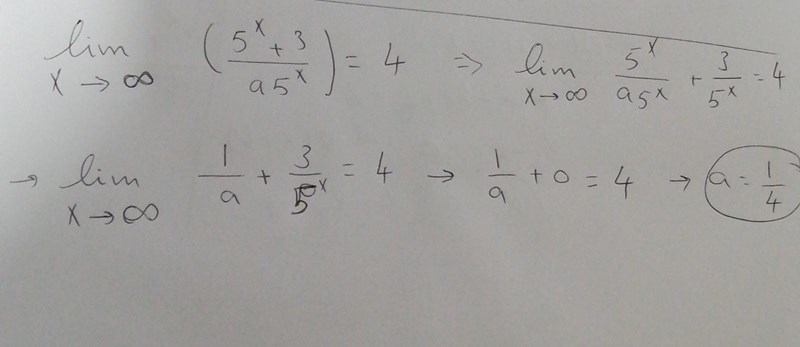 lim x→∞ ( (5^x + 3) / (a5^x) ) = 4 ⇒ lim x→∞ 5^x / (a5^x) + 3 / 5^x = 4
→ lim x→∞ 1/a + 3/5^x = 4 → 1/a + 0 = 4 → a = 1/4